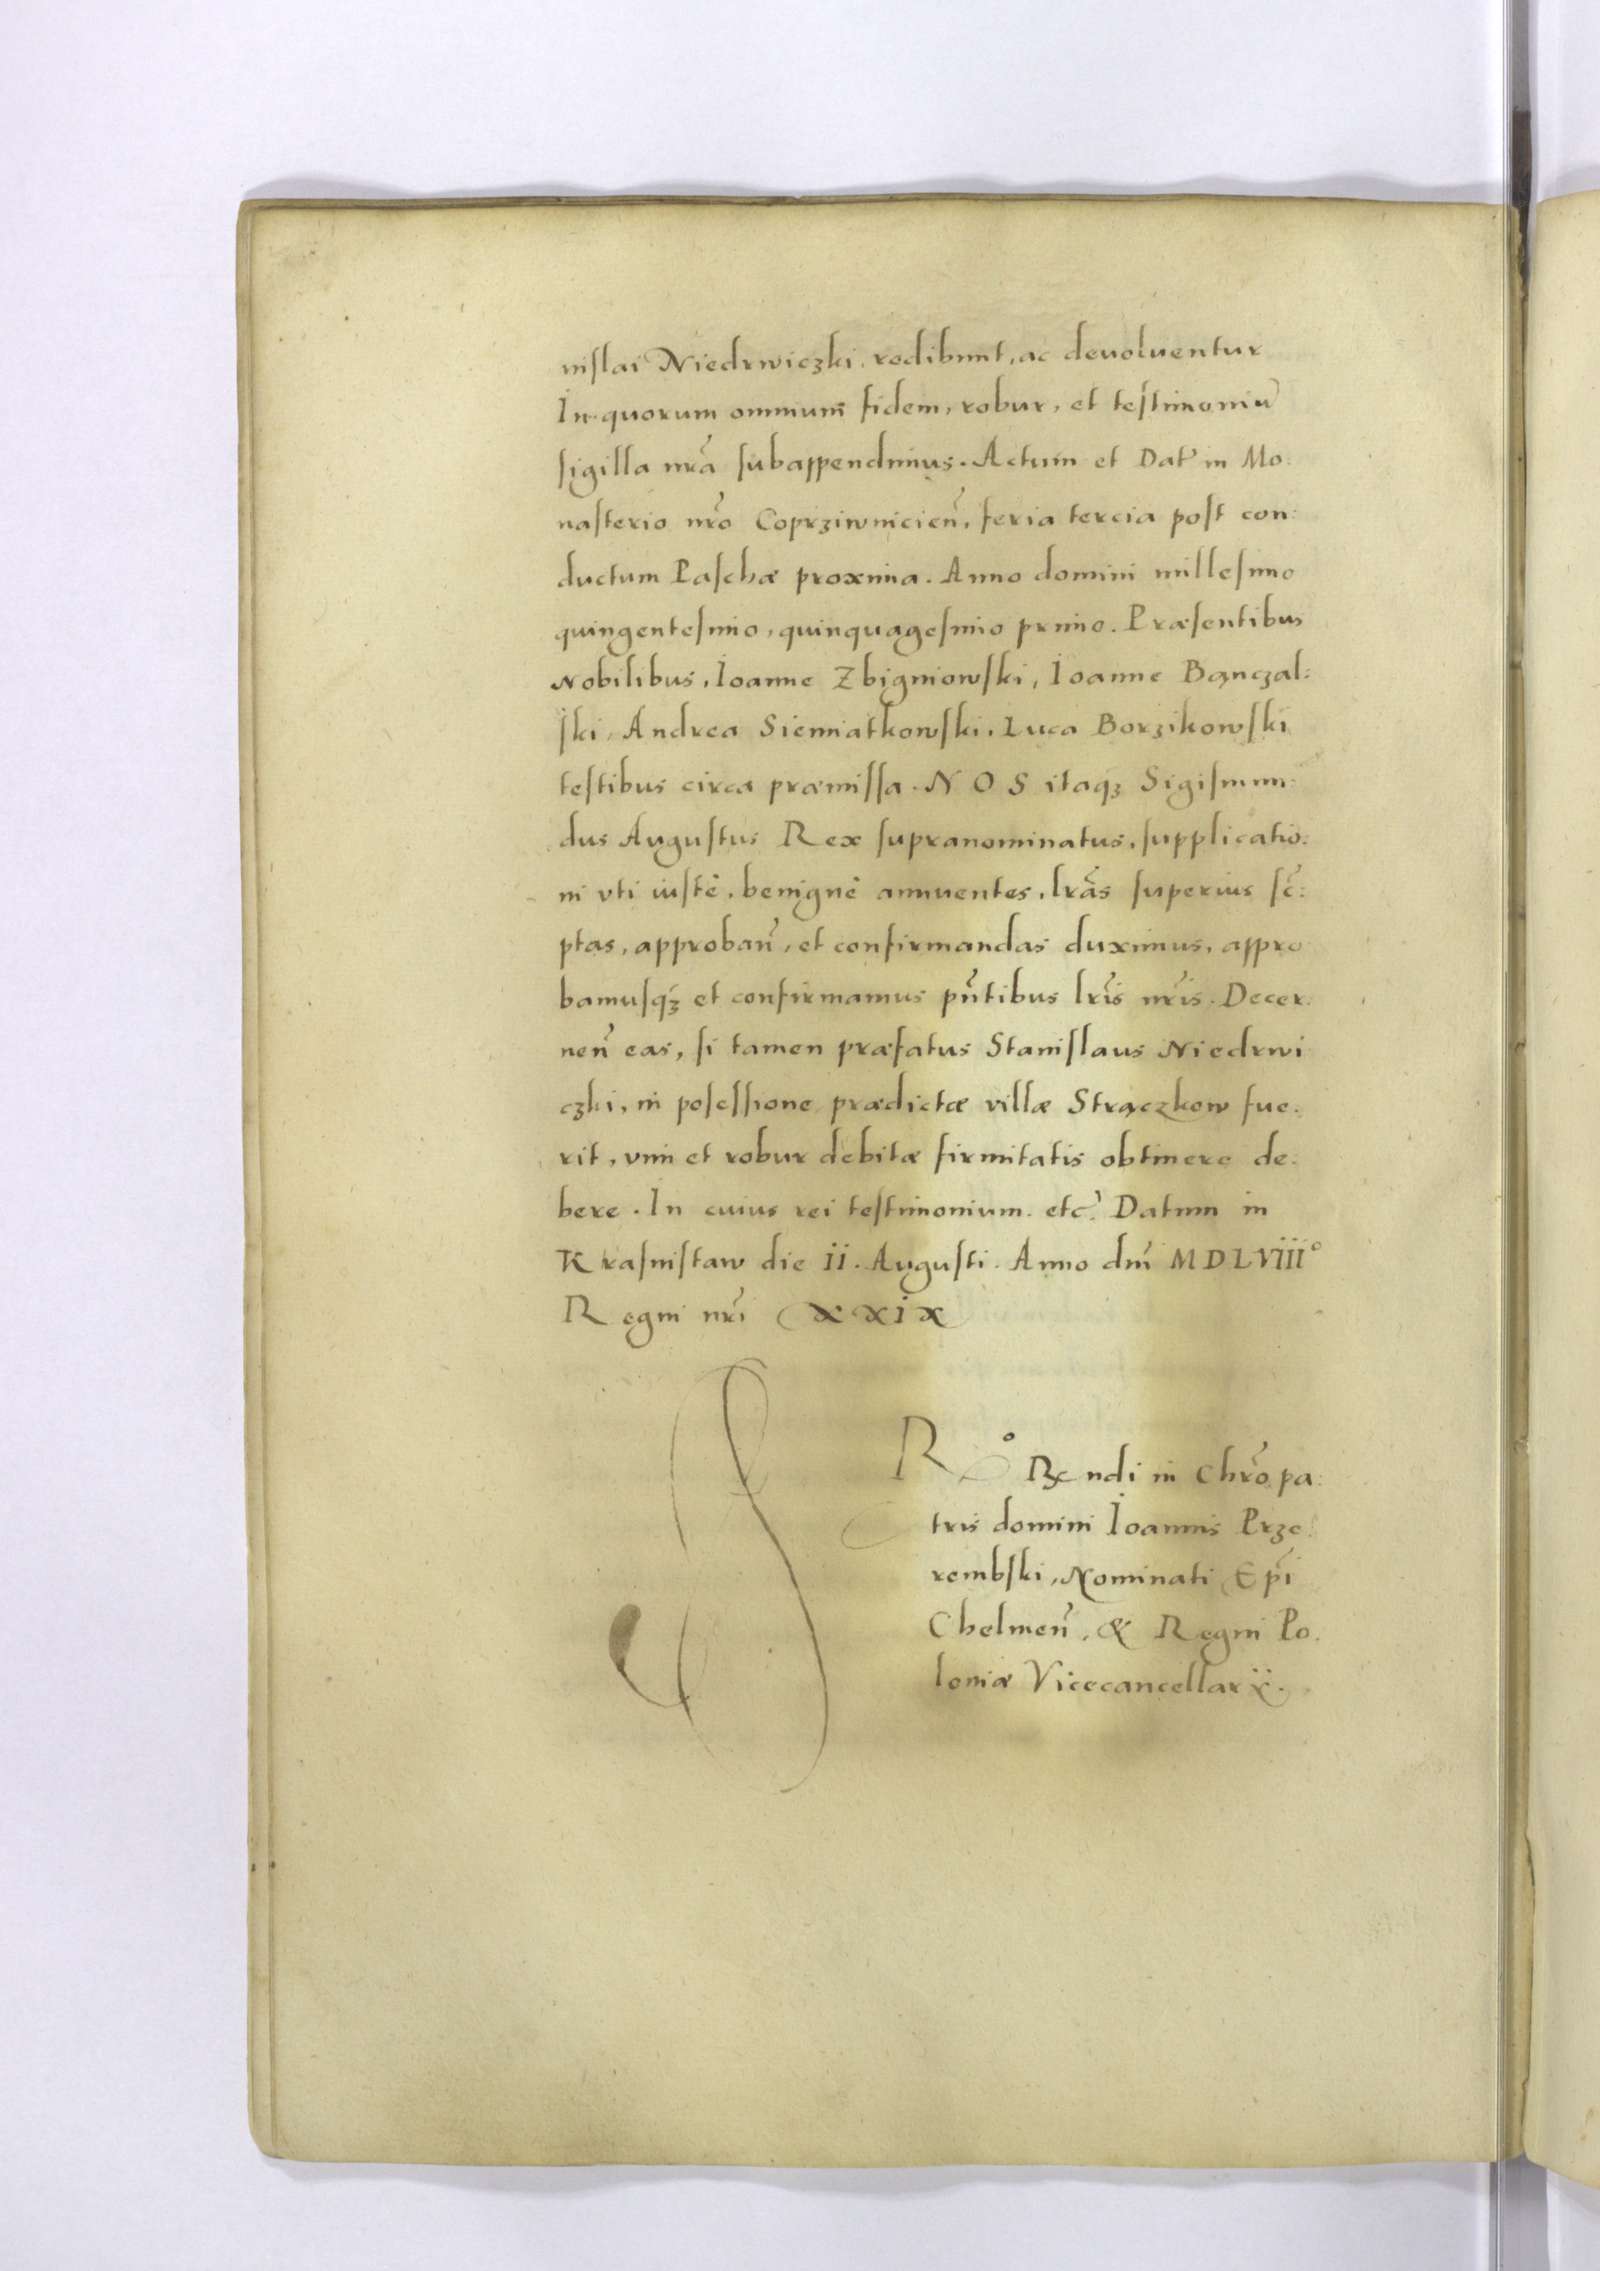 niſlai Niedrwiczki, redibunt, ac deuoluentur
In quorum omnium fidem, robur, et teſtimoniũ
ſigilla nr̃a ſubappendimus. Actum et Dat̃ in Mo:
naſterio nr̃o Coprziwnicien̄, feria tercia poſt con:
ductum Paſchæ proxima. Anno domini milleſimo
quingenteſimo, quinquageſimo primo. Præſentibus
Nobilibus, Ioanne Zbigniowſki, Ioanne Bączal:
ſki, Andrea Sienniatkowſki, Luca Borzikowſki
teſtibus circa præmiſſa. NOS itaqꝫ Sigiſmun:
dus Auguſtus Rex ſupranominatus, ſupplicatio:
ni vti iuſtè, benignè annuentes, lr̃as ſuperius ſc̃:
ptas, approban̄, et confirmandas duximus, appro
bamuſqꝫ et confirmamus pñtibus lr̃is nr̃is. Decer:
nen̄ eas, ſi tamen præfatus Staniſlaus Niedrwi
czki, in poſeſſione prædictæ villæ Strączkow fue:
rit, vim et robur debitæ firmitatis obtinere de:
bere. In cuius rei teſtimonium. etc̃. Datum in
Kraſniſtaw die ii. Auguſti. Anno dñi MDLViii°
Regni nr̃i xxix
R° Rendi in Chr̃o pa:
tris domini Ioannis Prze:
rembſki, Nominati Ep̃i
Chelmen̄, & Regni Po:
loniæ Vicecancellarii.